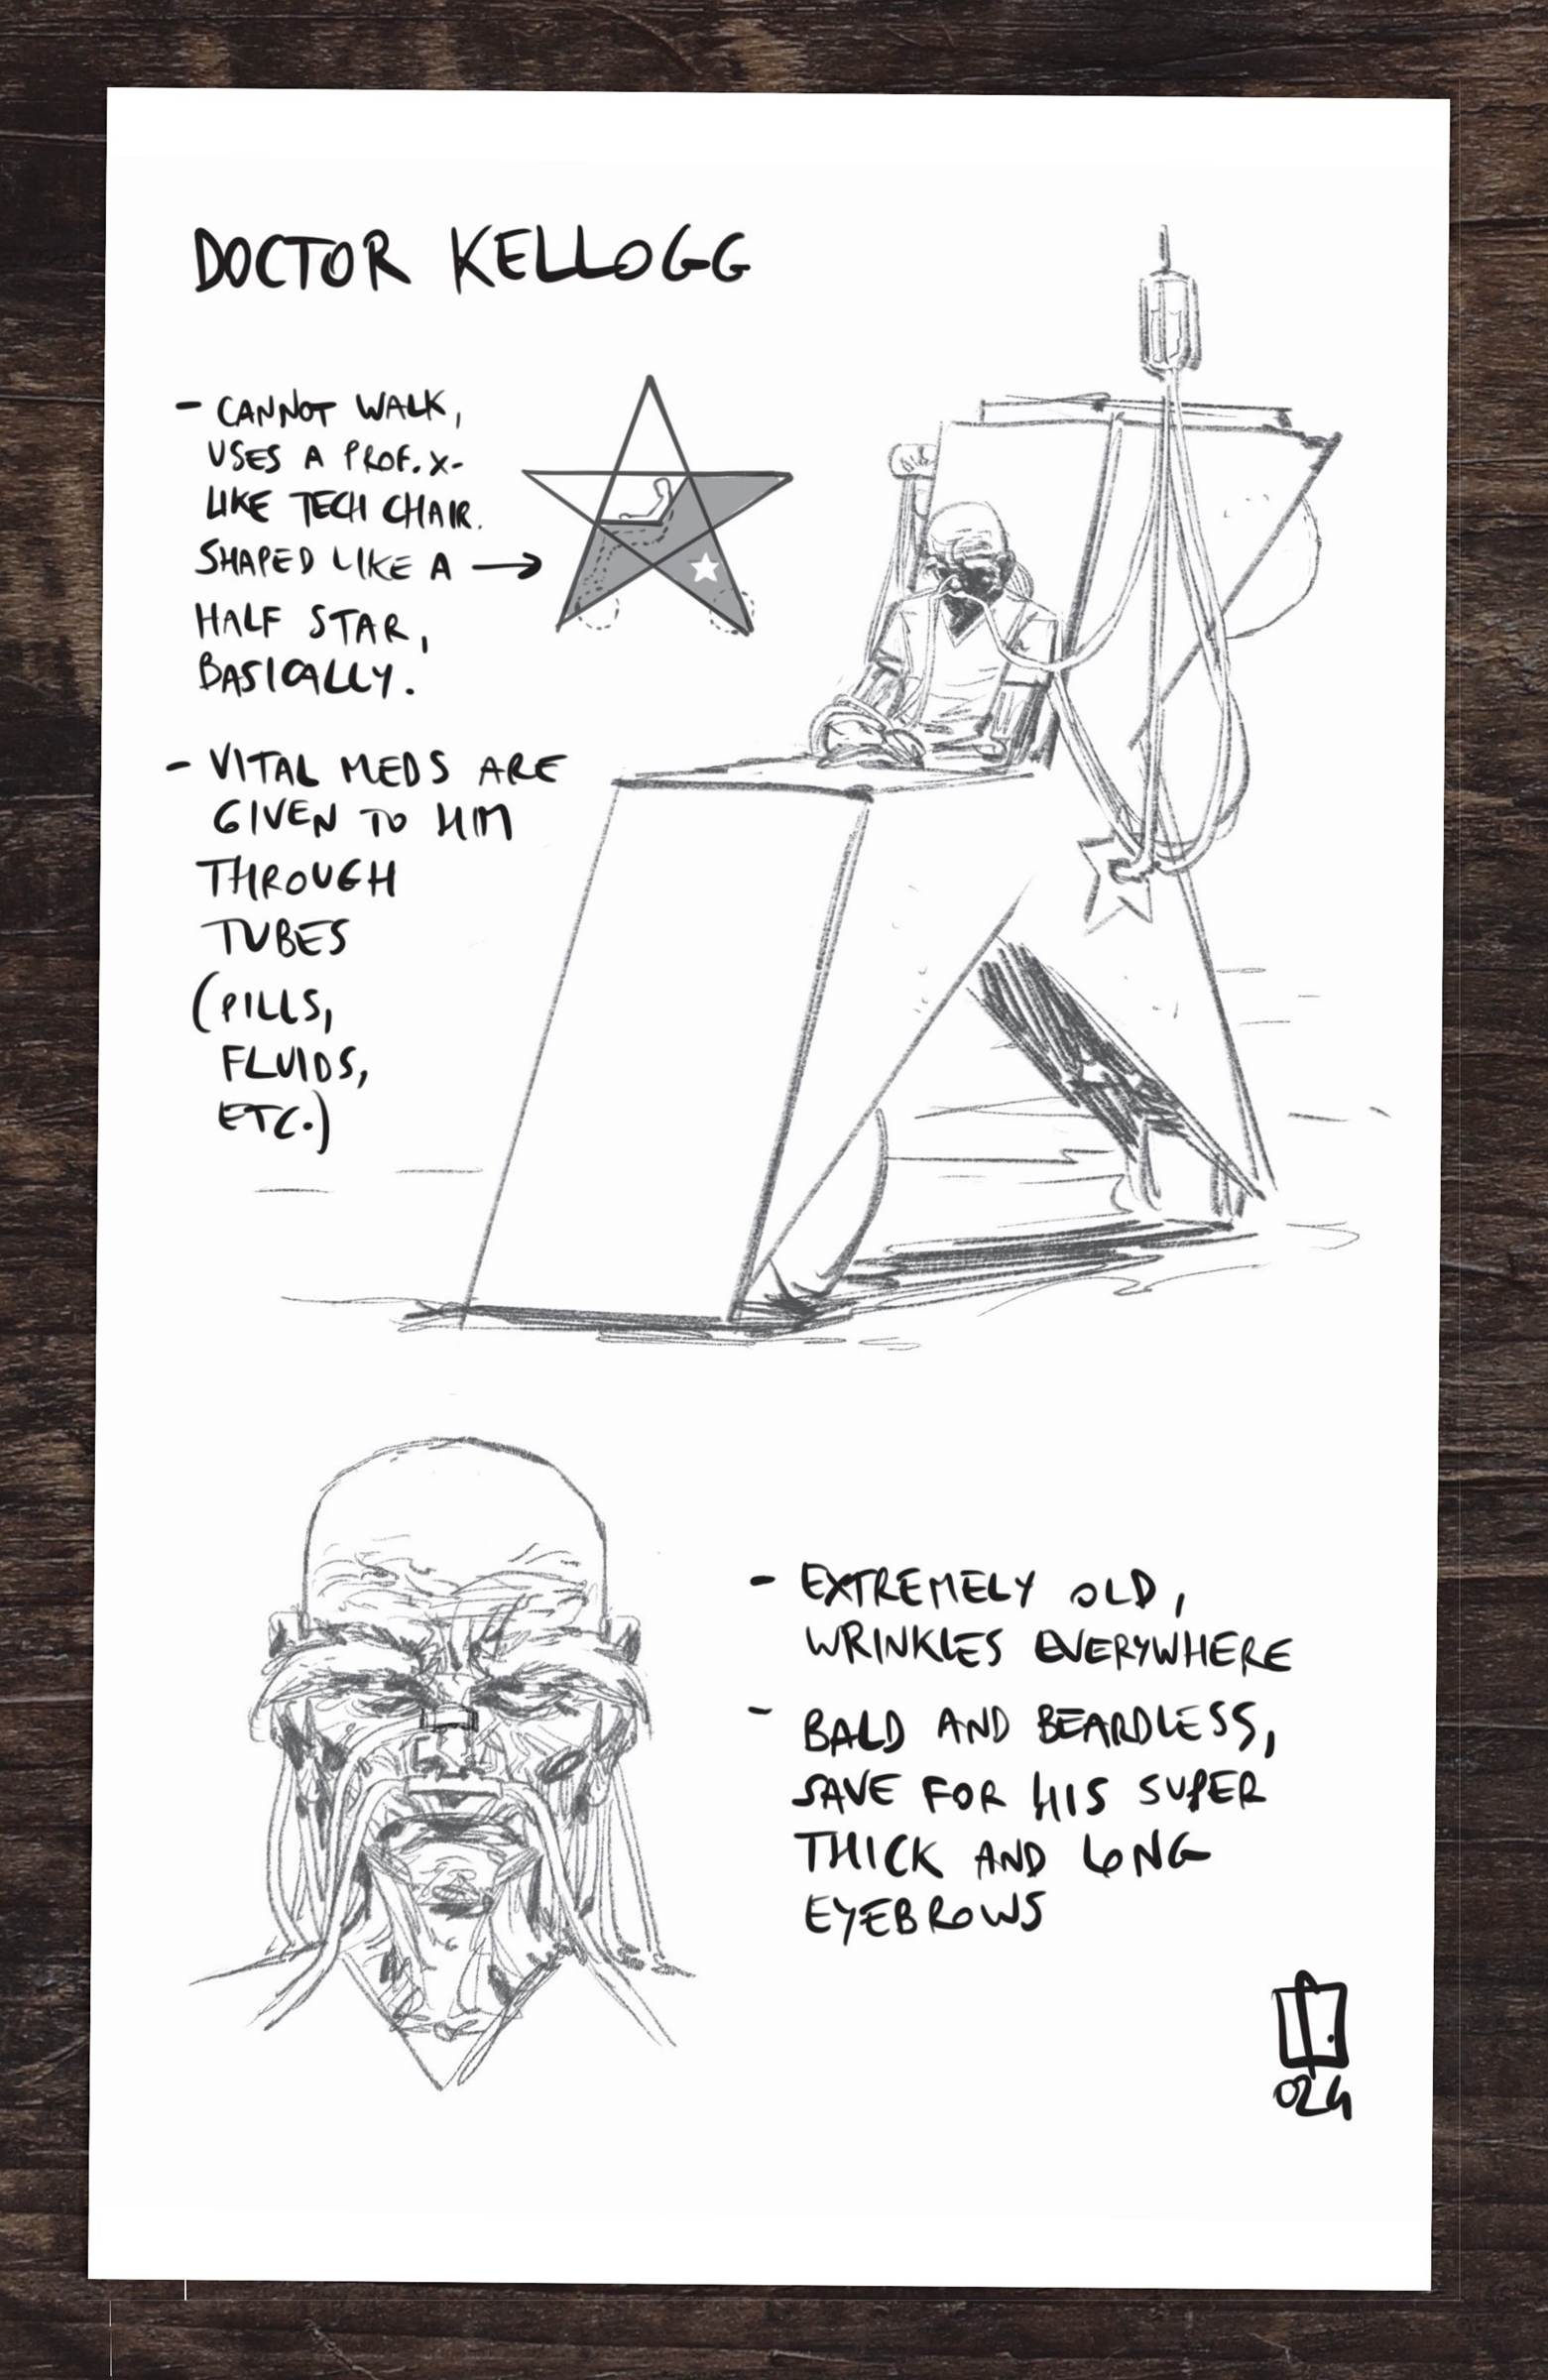 DOCTOR KELLOGG
- CANNOT WALK,
USES A PROF. X-
LIKE TECH CHAIR.
SHAPED LIKE A →
HALF STAR,
BASICALLY.
- VITAL MEDS ARE
GIVEN TO HIM
THROUGH
TUBES
(PILLS,
FLUIDS,
ETC.)
- EXTREMELY OLD,
WRINKLES EVERYWHERE
- BALD AND BEARDLESS,
SAVE FOR HIS SUPER
THICK AND LONG
EYEBROWS
024